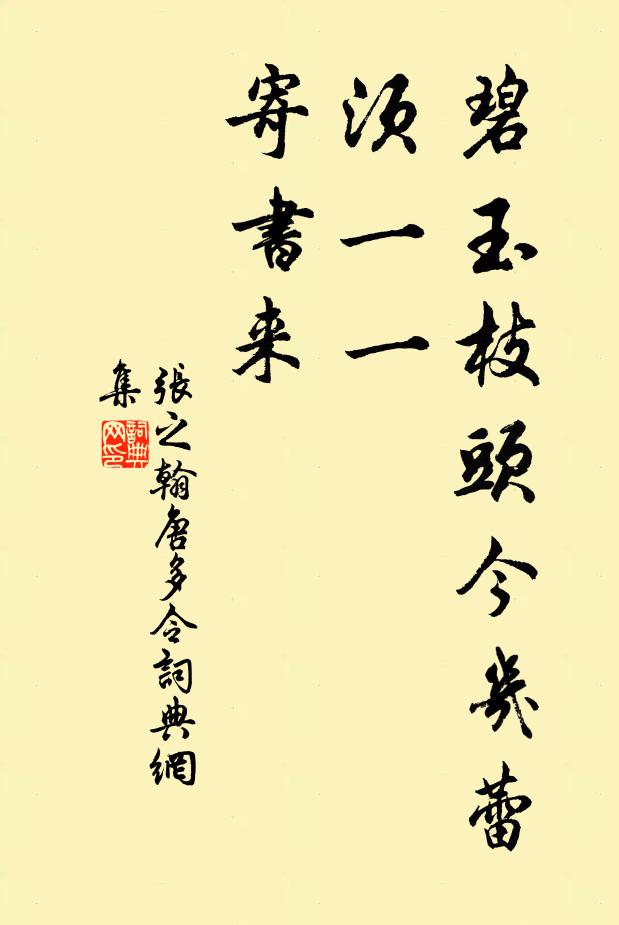 碧玉枝頭今幾蕾
須一一
寄書来
張之翰唐多令詞典網
集
詞典
网印